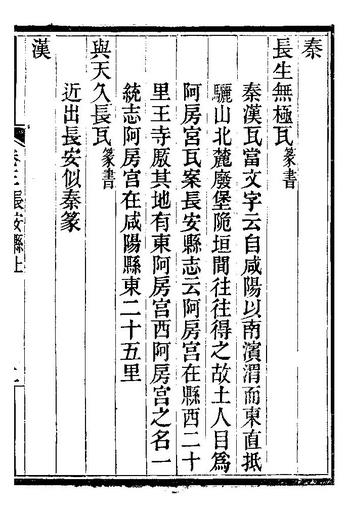 秦
長生無極瓦篆書
秦漢瓦當文字云自咸陽以南濱渭而東直抵
驪山北麓廢堡隤垣間往往得之故土人目爲
阿房宮瓦案長安縣志云阿房宮在縣西二十
里王寺厫其地有東阿房宮西阿房宮之名一
統志阿房宮在咸陽縣東二十五里
與天久長瓦篆書
近出長安似秦篆
漢
長安縣上